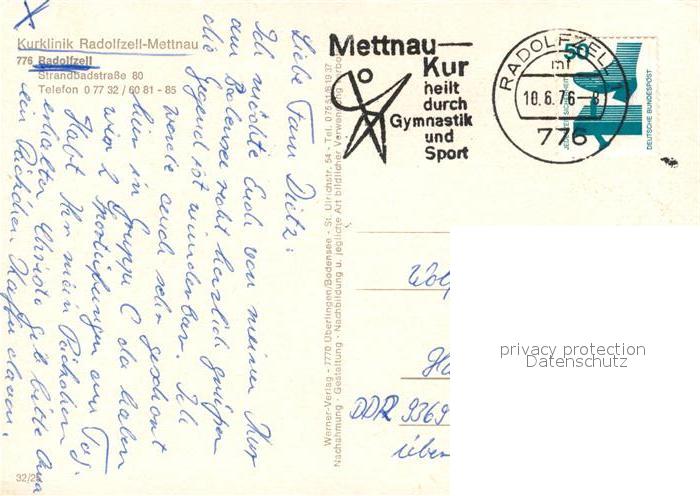 Kurklinik Radolfzell-Mettnau
776 Radolfzell
Strandbadstraße 80
Telefon 0 77 32 / 60 81 - 85
Liebe Fam Dietz!
Ich möchte Euch von meiner Kur
am Bodensee recht herzlich grüßen
die Gegend ist wunderbar. Ich
werde auch sehr geschont
bin in Gruppe C da haben
wir 2 Sportübungen am Tag.
Habt Ihr mein Päckchen
erhalten, Christa gib bitte
ein Päckchen Kaffee davon.
32/25
Werner-Verlag - 7770 Überlingen/Bodensee - St. Ulrichstr. 54 - Tel. 075 51/6 19 37
Nachahmung - Gestaltung - Nachbildung u. jegliche Art bildlicher Verwertung verboten
Mettnau—
Kur
heilt
durch
Gymnastik
und
Sport
RADOLFZELL 1
mf
10.6.76-8
776
50
JEDERZEIT SICHERHEIT
DEUTSCHE BUNDESPOST
DDR 9369
über
privacy protection
Datenschutz